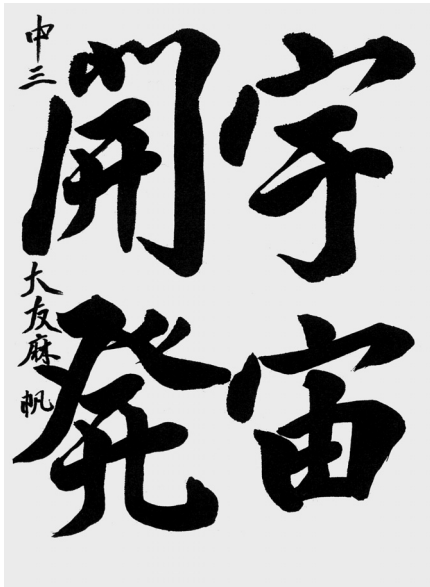 宇宙
開発
中三 大友麻帆